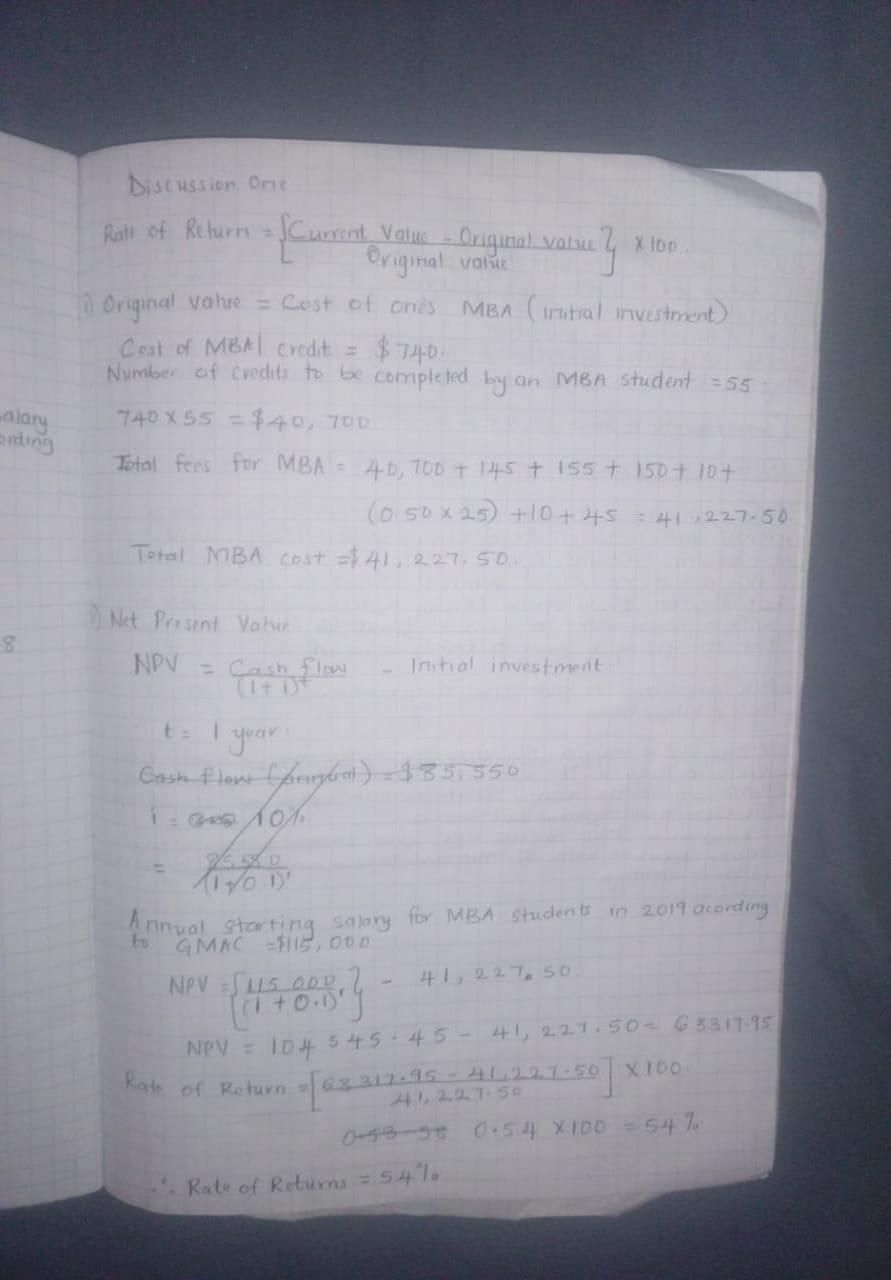 Discussion One
Rate of Return = {Current Value - Original value / Original value} X 100.
i) Original value = Cost of one's MBA (initial investment)
Cost of MBA 1 credit = $740.
Number of credits to be completed by an MBA student = 55.
740 X 55 = $40,700
Total fees for MBA = 40,700 + 145 + 155 + 150 + 10 +
(0.50 X 25) + 10 + 45 = 41,227.50
Total MBA cost = $41,227.50.
i) Net Present Value.
NPV = Cash flow / (1 + i)^t - Initial investment
t = 1 year
Cash flow () = $85,550
i = 10%
= 85550 / (1+0.1)^1
Annual starting salary for MBA students in 2019 acording
to GMAC = $115,000
NPV = {115 000 / (1 + 0.1)^1} - 41,227.50
NPV = 104 545.45 - 41,227.50 = 63317.95
Rate of Return = [63317.95 - 41,227.50 / 41,227.50] X 100.
0.54 X 100 = 54%
∴ Rate of Returns = 54%
salary
ording
8